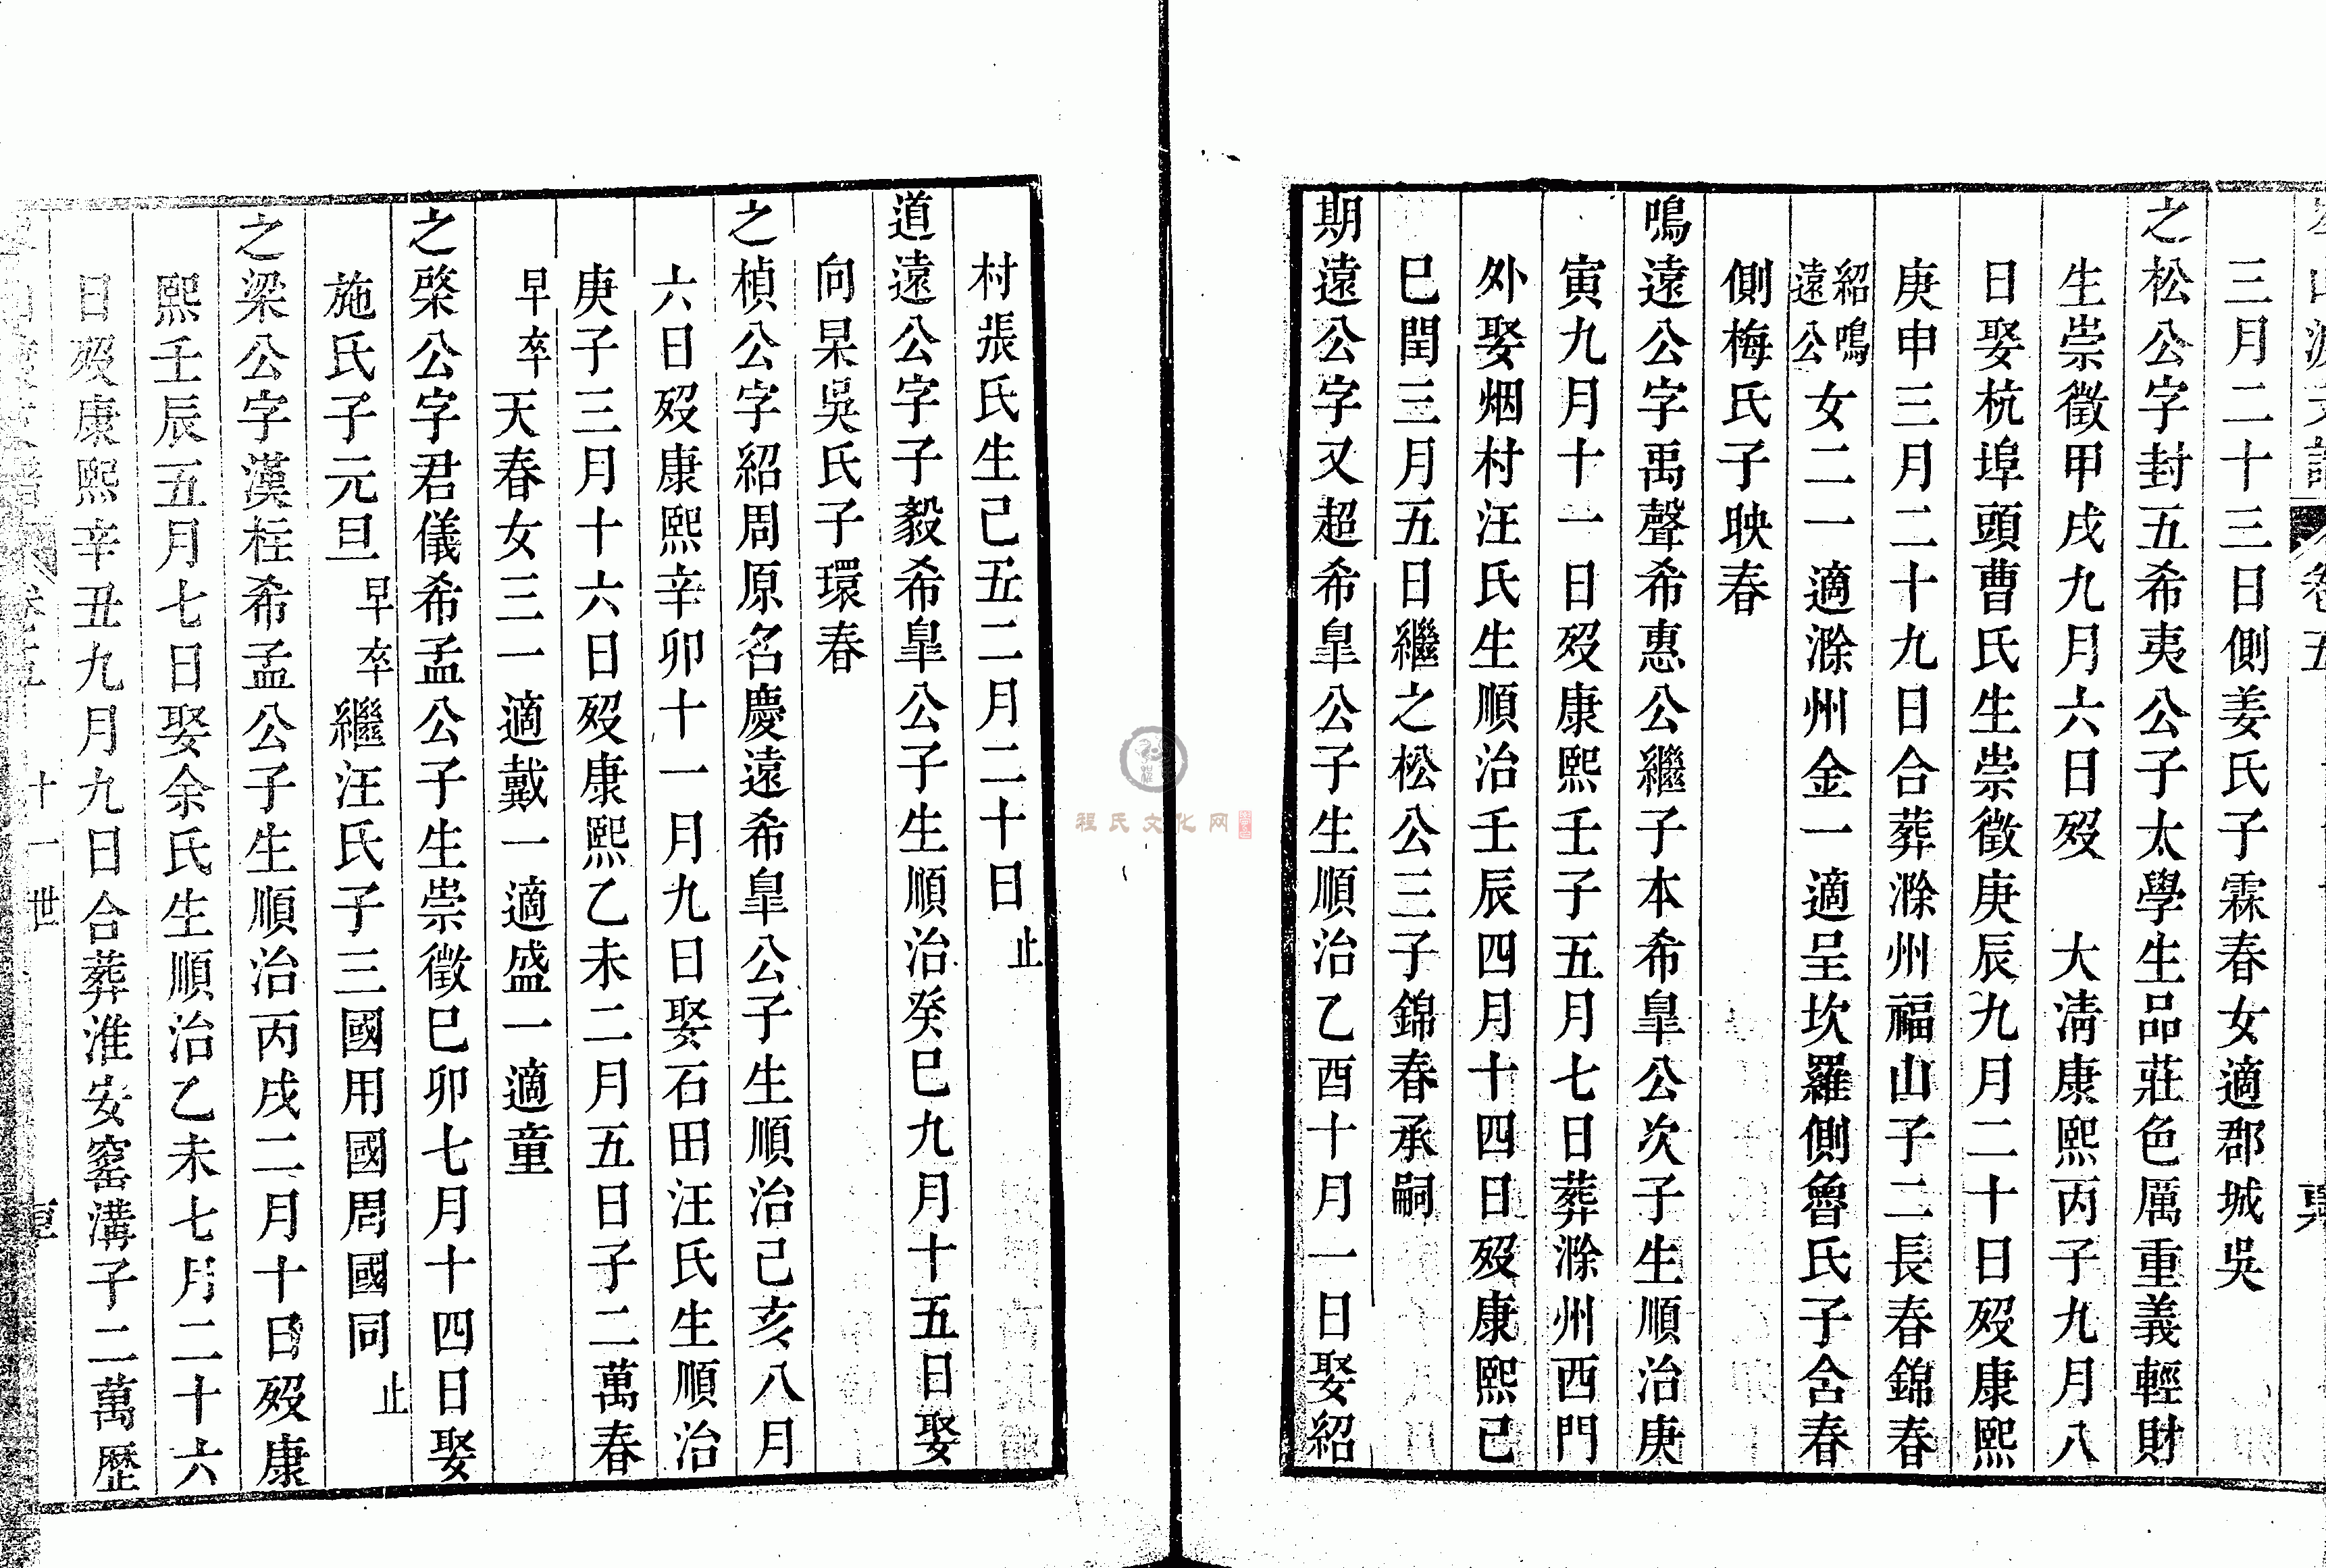 卷五
三月二十三日側姜氏子霖春女適郡城吳
之松公字封五希夷公子太學生品莊色厲重義輕財
生崇徵甲戌九月六日歿　大清康熙丙子九月八
日娶杭埠頭曹氏生崇徵庚辰九月二十日歿康熙
庚申三月二十九日合葬滁州福山子二長春錦春
紹鳴遠公女二一適滁州金一適呈坎羅側魯氏子含春
側梅氏子映春
鳴遠公字禹聲希惠公繼子本希皐公次子生順治庚
寅九月十一日歿康熙壬子五月七日葬滁州西門
外娶烟村汪氏生順治壬辰四月十四日歿康熙己
巳閏三月五日繼之松公三子錦春承嗣
期遠公字又超希皐公子生順治乙酉十月一日娶紹
村張氏生己五二月二十日止
道遠公字子毅希皐公子生順治癸巳九月十五日娶
向杲吳氏子環春
之楨公字紹周原名慶遠希皐公子生順治己亥八月
六日歿康熙辛卯十一月九日娶石田汪氏生順治
庚子三月十六日歿康熙乙未二月五日子二萬春
早卒天春女三一適戴一適盛一適童
之棨公字君儀希孟公子生崇徵巳卯七月十四日娶
施氏子元旦早卒繼汪氏子三國用國周國同止
之梁公字漢桂希孟公子生順治丙戌二月十日歿康
熙壬辰五月七日娶余氏生順治乙未七月二十六
日歿康熙辛丑九月九日合葬淮安窰溝子二萬歷
卷五　十一世
程氏文化网